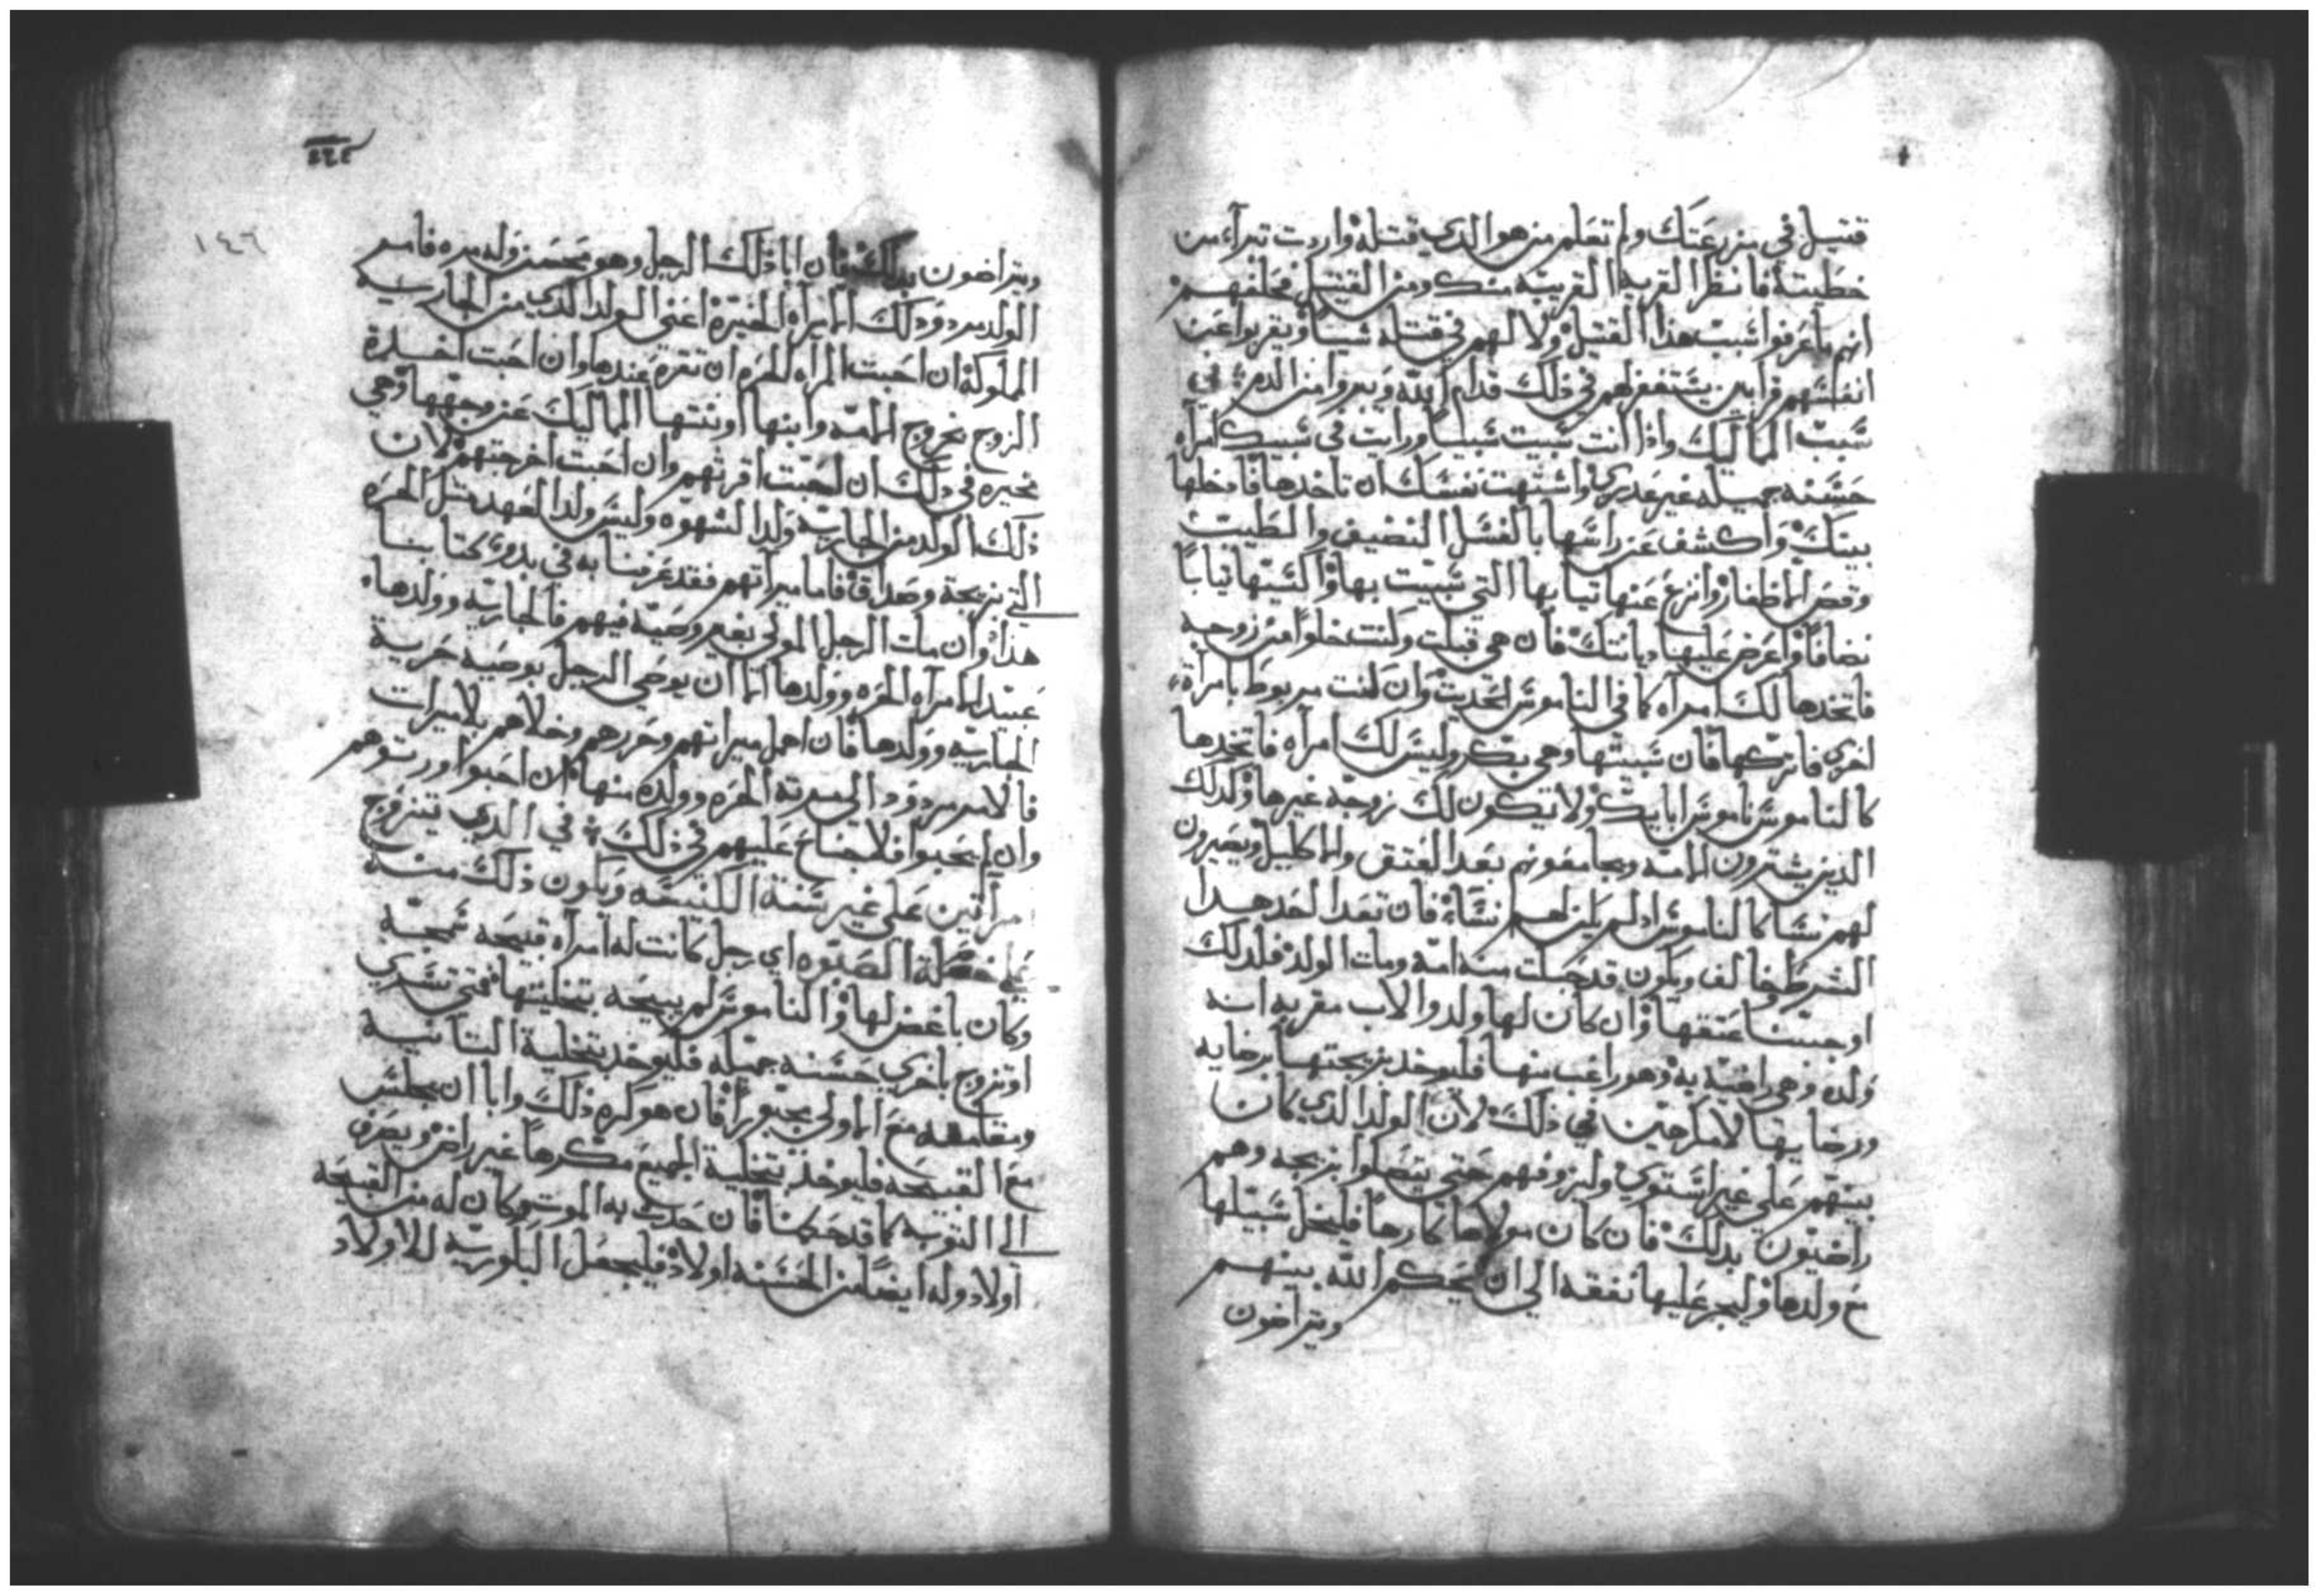 قتيل في مزرعتك ولم تعلم من هو الدي قتله واردت تبراء من
خطيته فانظر القريه القريبه منك ومن القتيل فحلفهم
انهم ما عرفوا سبب هذا القتيل ولا لهم في قتله شيا ويقربوا عن
انفسهم قرابين يستغفر لهم في ذلك قدام الله ويبروا من الدم في
سبب المماليك واذا انت سبيت سبيا ورايت في سبيك امراه
حسنه جميله غير واشتهت نفسك ان تاخدها فادخلها
بيتك واكشف عن راسها بالغسل النضيف والطيب
وقص الاظفار وانزع عنها تيابها التي سبيت بها واكسيها تيابا
نضافا واعرض عليها ديانتك فان هي قبلت وكنت خلوا من زوجه
فاتخدها لك امراه كما في الناموس الحديث وان كنت مربوط بامراة
اخرى فاتركها فان سبيتها وهي بكر وليس لك امراه فاتخدها
كالناموس ناموس ابايك ولا تكون لك زوجه غيرها وكدلك
الدين يشترون الامه ويجامعونهم بعد العتق والاكليل ويصيرون
لهم نسا كالناموس اد لم يكن لهم نساء فان تعدا احد هدا
الشرط وخالف ويكون قد حبلت منه امه ومات الولد فلدلك
اوجبنا عتقها وان كان لها ولد والاب مقر به انه
ولده وهي راضيه به وهو راغب منها فليوخد بزيجتها برضايه
ورضايها لا مكرهين في ذلك لان الولد الدي كان
بينهم على غير استوي وليزوفهم حتى يتصلوا بزيجه وهم
راضيون بدلك فان كان مولاها كارها فليخل سبيلها
مع ولدها وليجر عليها نفقه الي ان يحكم الله بينهم
ويتراضون
٢٤٤
١٤٦
ويتراضون بدلك فان ابا ذلك الرجل وهو محسن ولم يره فاسم
الولد مردود لك الامراه الخيره اعني الولد الدي من الجاريه
المملوكه ان احبت المراه الحره ان تقره عندها وان احبت اخلاه
الزوج بخروج الامه وابنها او بنتها المماليك عن وجهها وهي
مخيره في ذلك ان احبت اقرتهم وان احبت اخرجتهم لان
ذلك الولد من الجاريه ولد الشهوه وليس ولد العهد متل الحره
التي بزيجة وصداق فاما ميراتهم فقد عرفنا به في بدو كتابنا
هدا وان مات الرجل المولى بغير وصيه فيهم فالجاريه وولدها
عبيد الامراه الحره وولدها الا ان يوصي الرجل بوصيه حرية
الجاريه وولدها فان اهمل ميراتهم وحررهم وخلاهم بلا ميرات
فالامر مردود الى الحره وولده منها ان احبوا ورتوهم
وان لم يحبوا فلا جناح عليهم في ذلك في الدي يتزوج
امراتين على غير سنة الكنيسه ويكون ذلك منه
على خصلة الصبوه اي رجل كانت له امراه قبيحه سمجه
وكان باغض لها والناموس لم يبيحه بتخليتها فتى تسري
او تزوج باخرى حسنه جميله فليوخد بتخلية التانيه
ومقامه مع الاولى مجبورا فان هو كره ذلك وابا ان يجلس
مع القبيحه فليوخد بتخلية الجميع مكرها غير راض ويصرف
الى التوبه كما قد حكمنا فان حدت به الموت وكان له من القبيحه
اولاد وله ايضا من الحسنه اولاد فليجعل البكوريه للاولاد